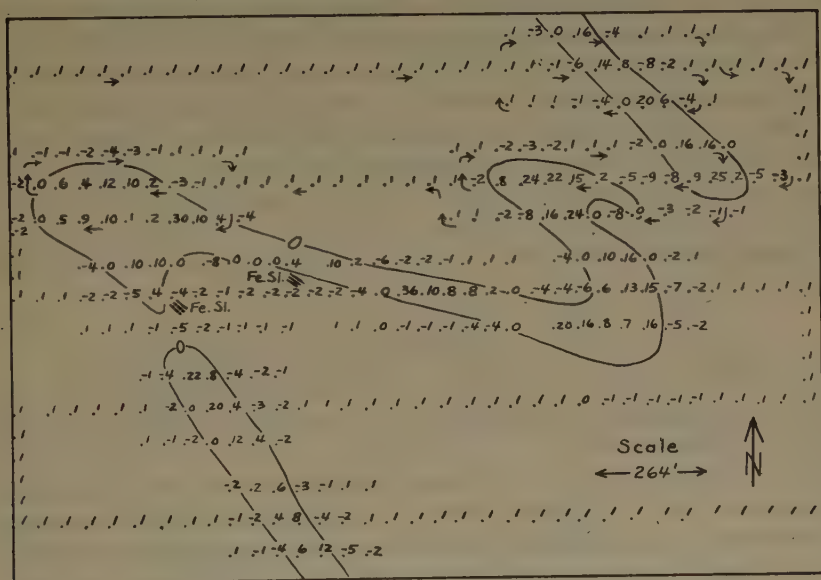 .1 -3 .0 .16 -4 .1 .1 .1 .1
.1 .1 .1 .1 .1 .1 .1 .1 .1 .1 .1 .1 .1 .1 .1 .1 .1 .1 -1 -6 .14 .8 -8 -2 .1 .1 .1 .1 .1 .1
.1 .1 .1 -1 -4 .0 20 6 -4 .1
.1 -1 -1 -2 -4 -3 -1 .1 .1 .1 .1
.1 .1 -2 -3 -2 .1 .1 .1 -2 .0 .16 .16 .0
-2 .0 .6 .4 .12 .10 .2 -3 -1 .1 .1 .1 .1 .1 .1 .1 .1 .1 .1 .1 -2 .8 .24 .22 .15 .2 -5 -9 -8 .9 .25 .2 -5 -3 .1
-2 .0 .5 .9 .10 .1 .2 .30 .10 .4 -4
.1 .1 -2 -8 .16 .24 .0 -8 .0 -3 -2 -1 -1
-2
0
-4 .0 .10 .10 .0 -8 .0 .0 .0 .4 .10 .2 -6 -2 -2 -1 .1 .1 .1 .1
-4 .0 .10 .16 .0 -2 .1
Fe. Sl.
.1 .1 .1 -2 -2 -5 .4 -4 -2 -1 -2 -2 -2 -2 -2 -4 .0 .36 .10 .8 .8 .2 .0 -4 -4 -6 .6 .13 .15 -7 -2 .1 .1 .1 .1
Fe. Sl.
.1 .1 .1 -1 -5 -2 -1 -1 -1 -1
.1 .1 .0 -1 -1 -1 -4 -4 .0
.20 .16 .8 .7 .16 -5 -2
0
-1 -4 .22 .8 -4 -2 -1
-2 .0 .20 .4 -3 -2 .1 .1 .1 .1 .1 .1 .1 .1 .1 .1 .1 .1 .1 .0 -1 -1 -1 -1 -1 .1 .1 .1
.1 -1 -2 .0 .12 .4 -2
Scale
264'
N
-2 .2 .6 -3 -1 .1 .1
-1 -2 .4 .8 -4 -2 .1 .1 .1 .1 .1 .1 .1 .1 .1 .1 .1 .1 .1 .1
.1 -1 -4 .6 .12 -5 -2